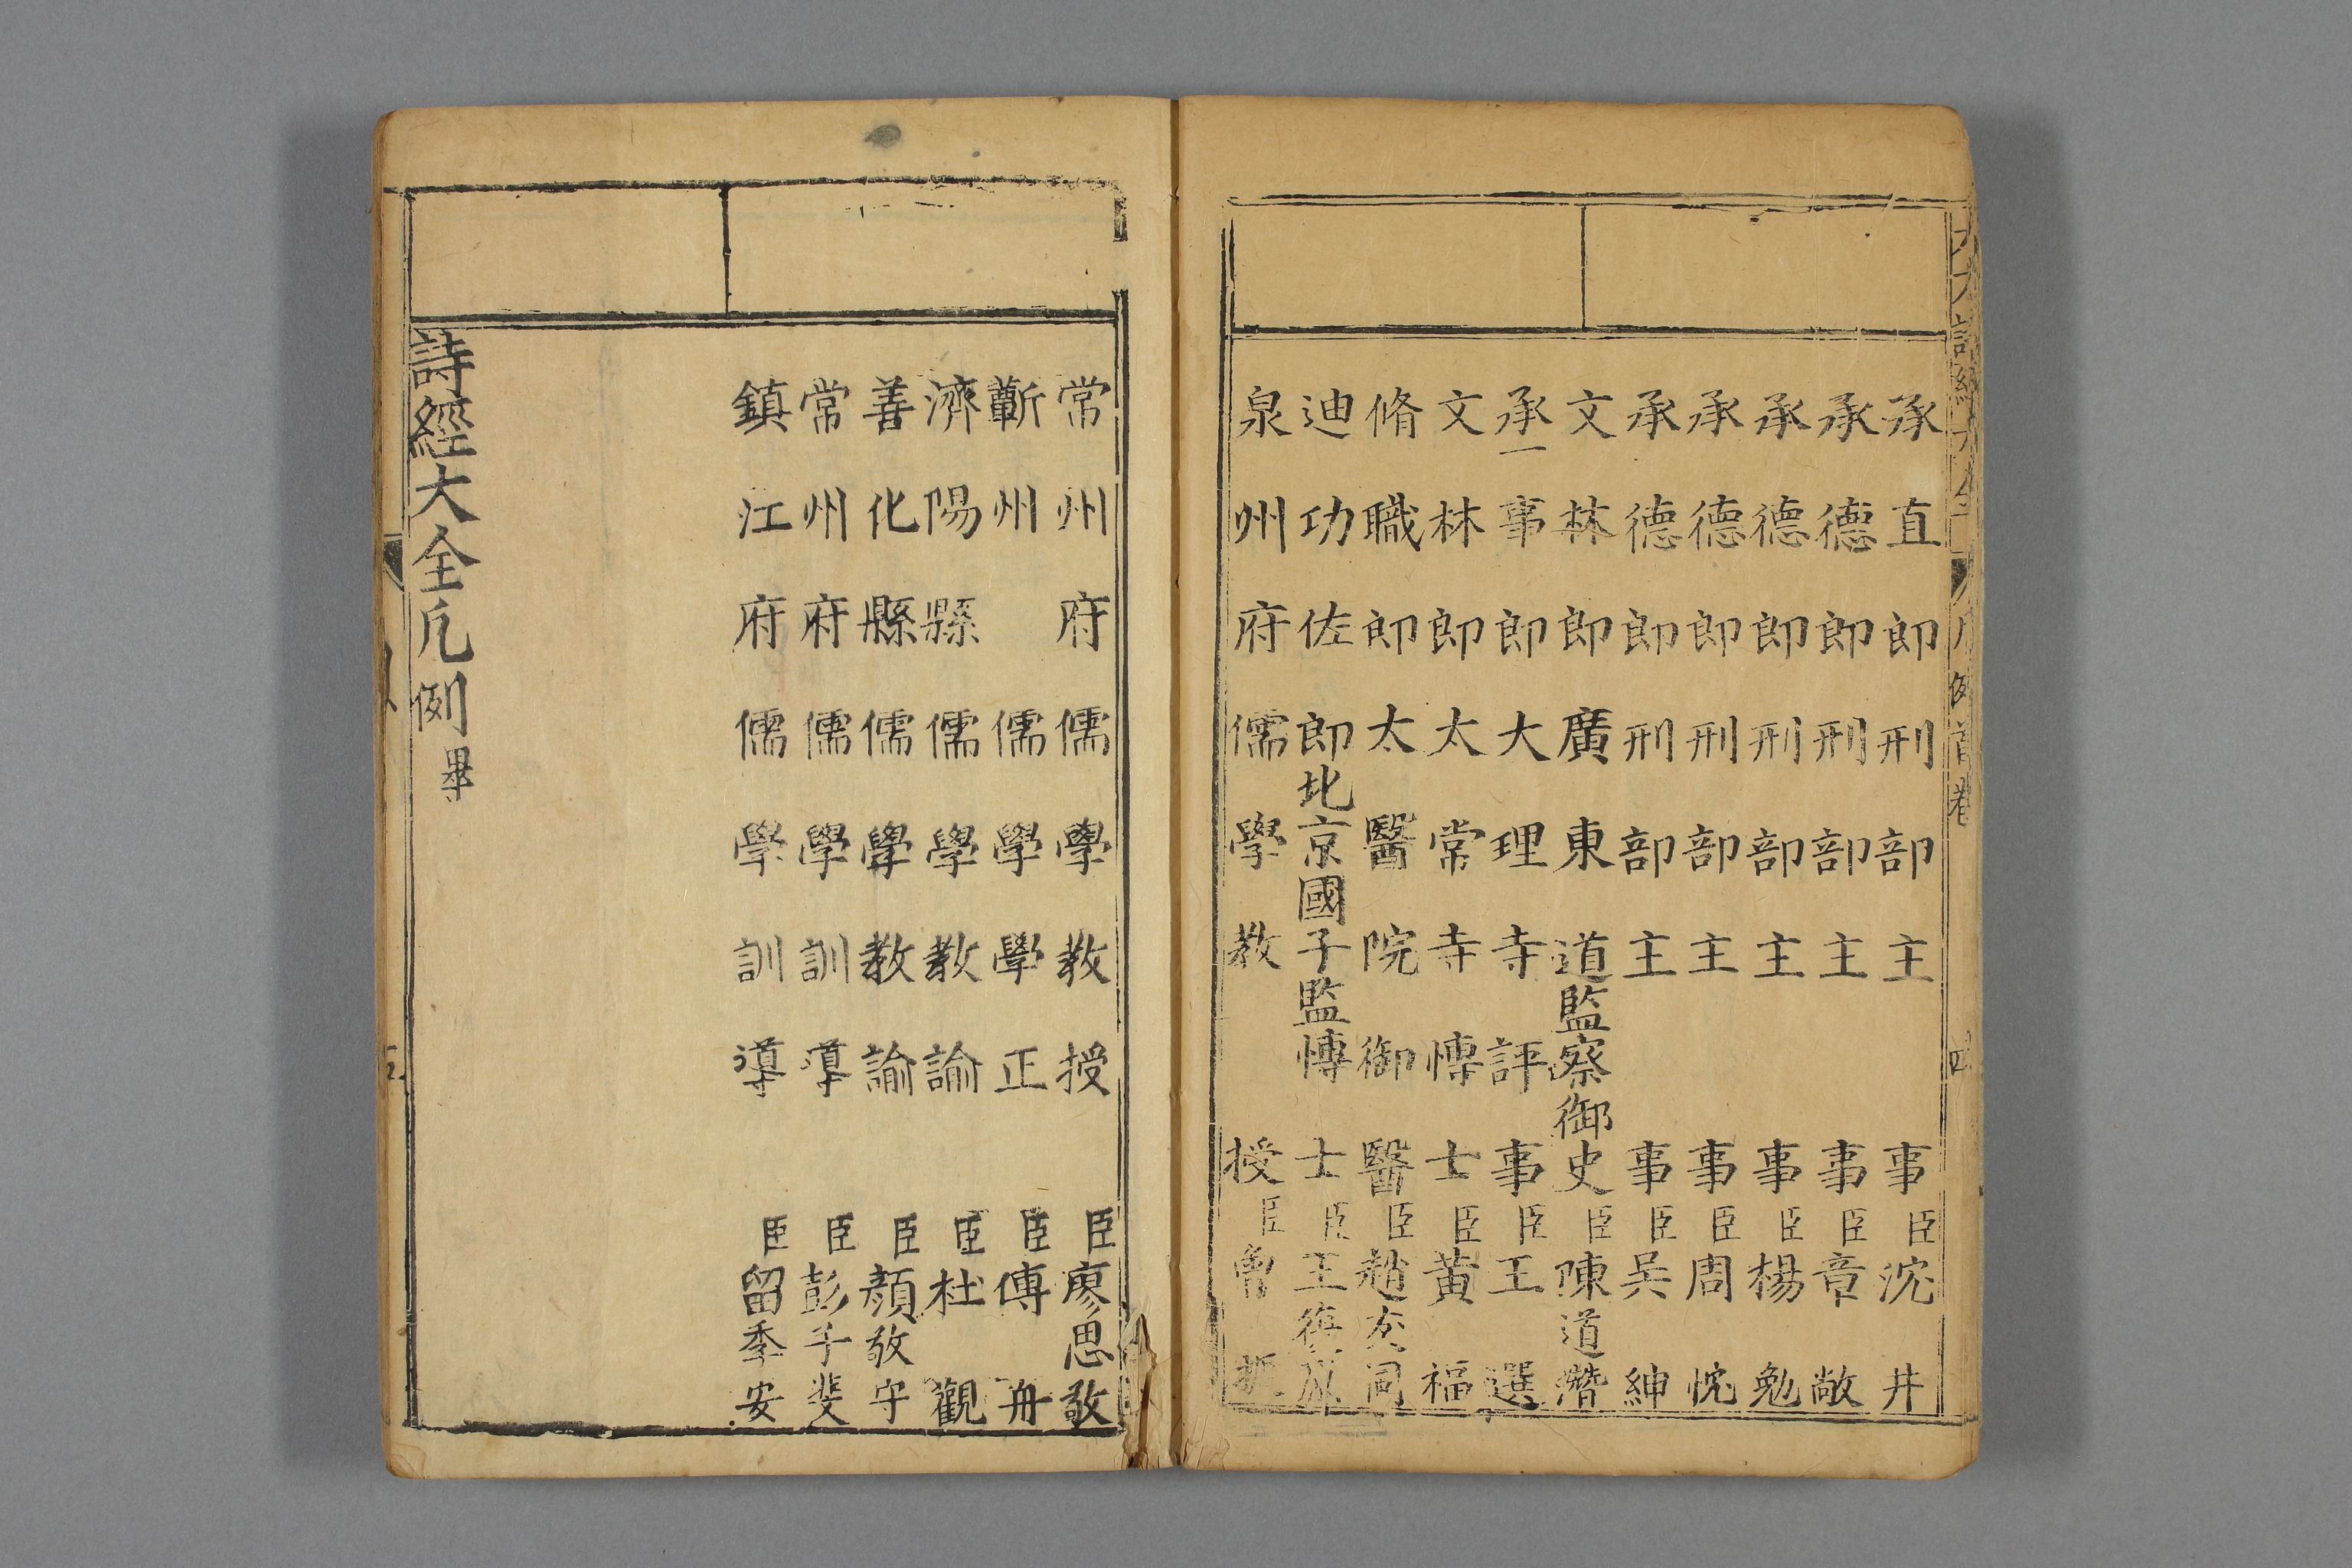 承直郎刑部主事臣沈升
承德郎刑部主事臣章敞
承德郎刑部主事臣楊勉
承德郎刑部主事臣周忱
承德郎刑部主事臣吳紳
文林郎廣東道監察御史臣陳道濳
承事郎大理寺評事臣王選
文林郎太常寺愽士臣黃福
脩職郎太醫院御醫臣趙友同
迪功佐郎北京國子監愽士臣王復原
泉州府儒學教授臣曾振
常州府儒學教授臣廖思敬
蘄州儒學學正臣傅舟
濟陽縣儒學教諭臣杜觀
善化縣儒學教諭臣顏敬守
常州府儒學訓導臣彭子斐
鎮江府儒學訓導臣留季安
詩經大全凡例畢